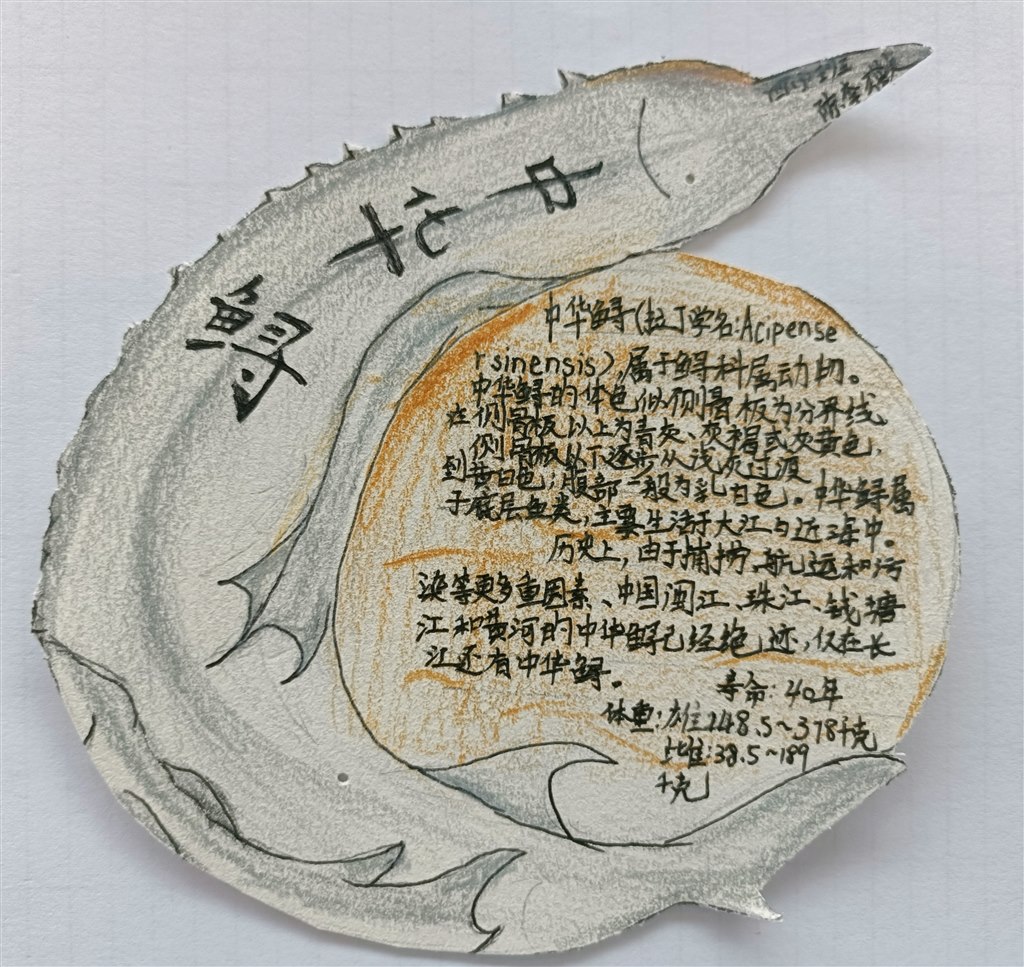 中华鲟
中华鲟(拉丁学名:Acipense
rsinensis),属于鲟科属动物。
中华鲟的体色似侧骨板为分界线
在侧骨板以上为青灰、灰褐或灰黄色,
侧骨板以下逐步从浅灰过渡
到黄白色;腹部一般为乳白色。中华鲟属
于底层鱼类,主要生活于大江与近海中。
历史上,由于捕捞、航运和污
染等更多重因素、中国闽江、珠江、钱塘
江和黄河的中华鲟已经绝迹,仅在长
江还有中华鲟。
寿命:40年
体重:雄148.5~378千克
雌:38.5~189
千克